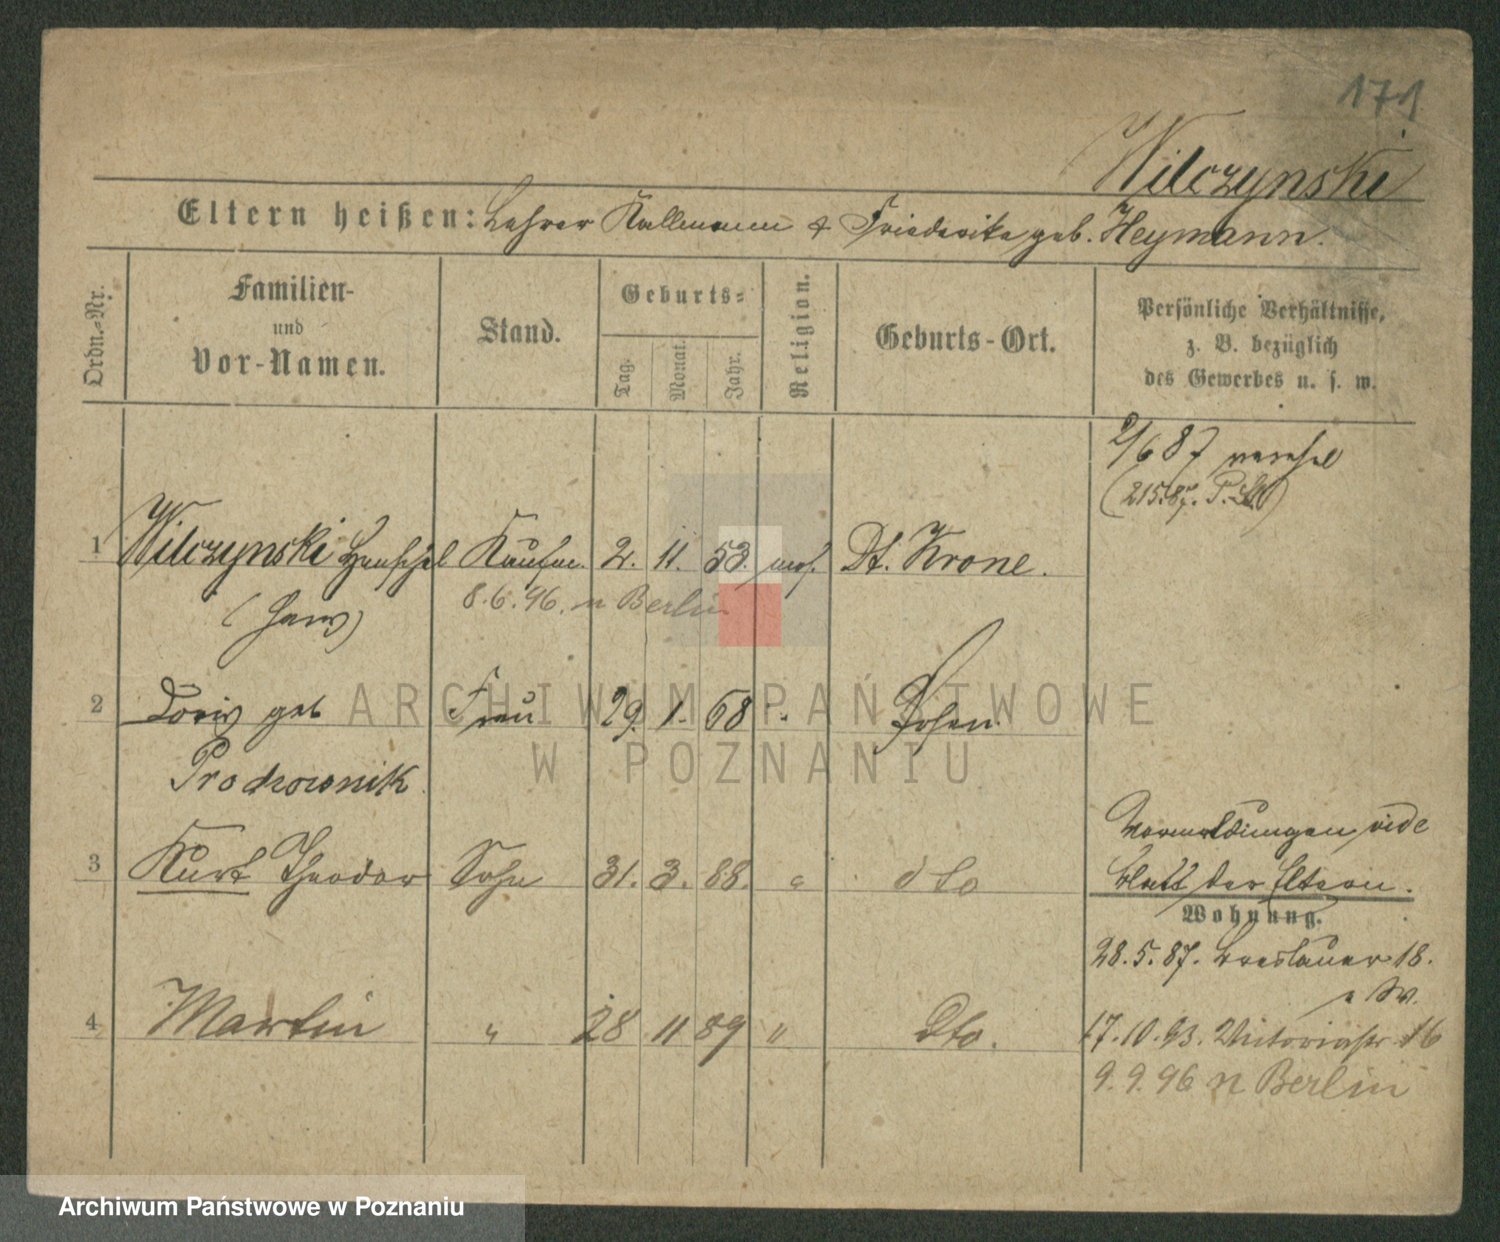 171
Wilczynski
Eltern heißen: Lehrer Kallmann & Friederike geb. Heymann.
Ordn.-Nr.
Familien-
und
Vor-Namen.
Stand.
Geburts-
Tag.
Monat.
Jahr.
Religion.
Geburts-Ort.
Persönliche Verhältnisse,
z. B. bezüglich
des Gewerbes u. s. w.
2/6 87
1 Wilczynski Henschel Kaufm. 2. 11. 53. mos. Dt. Krone.
(Hans) 8.6.96. n Berlin
2 Doris geb Frau 29. 1. 68 Posen
Prochownik
3 Kurt Theodor Sohn 31. 3. 88. dto
Vormeldungen vide
Blatt der Eltern.
Wohnung.
28.5.87. Breslauer 18.
4 Martin " 28 11 89 " Dto.
17.10.93. Victoriastr 16
9.9.96 n Berlin
ARCHIWUM PAŃSTWOWE
W POZNANIU
Archiwum Państwowe w Poznaniu